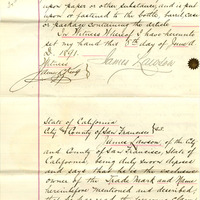 upon paper or other substance, and is put
upon or fastened to the bottle, barrel, case
or package containing the article.
In Witness Whereof I have hereunto
set my hand this 8th day of June A.
D. 1891.
Witness
James Lawlor
State of California
City & County of San Francisco } ss.
James Lawlor, of the City
and County of San Francisco, State of
California, being duly sworn deposes
and says that he is the exclusive
owner of the Trade Mark and Name
hereinbefore mentioned and described,